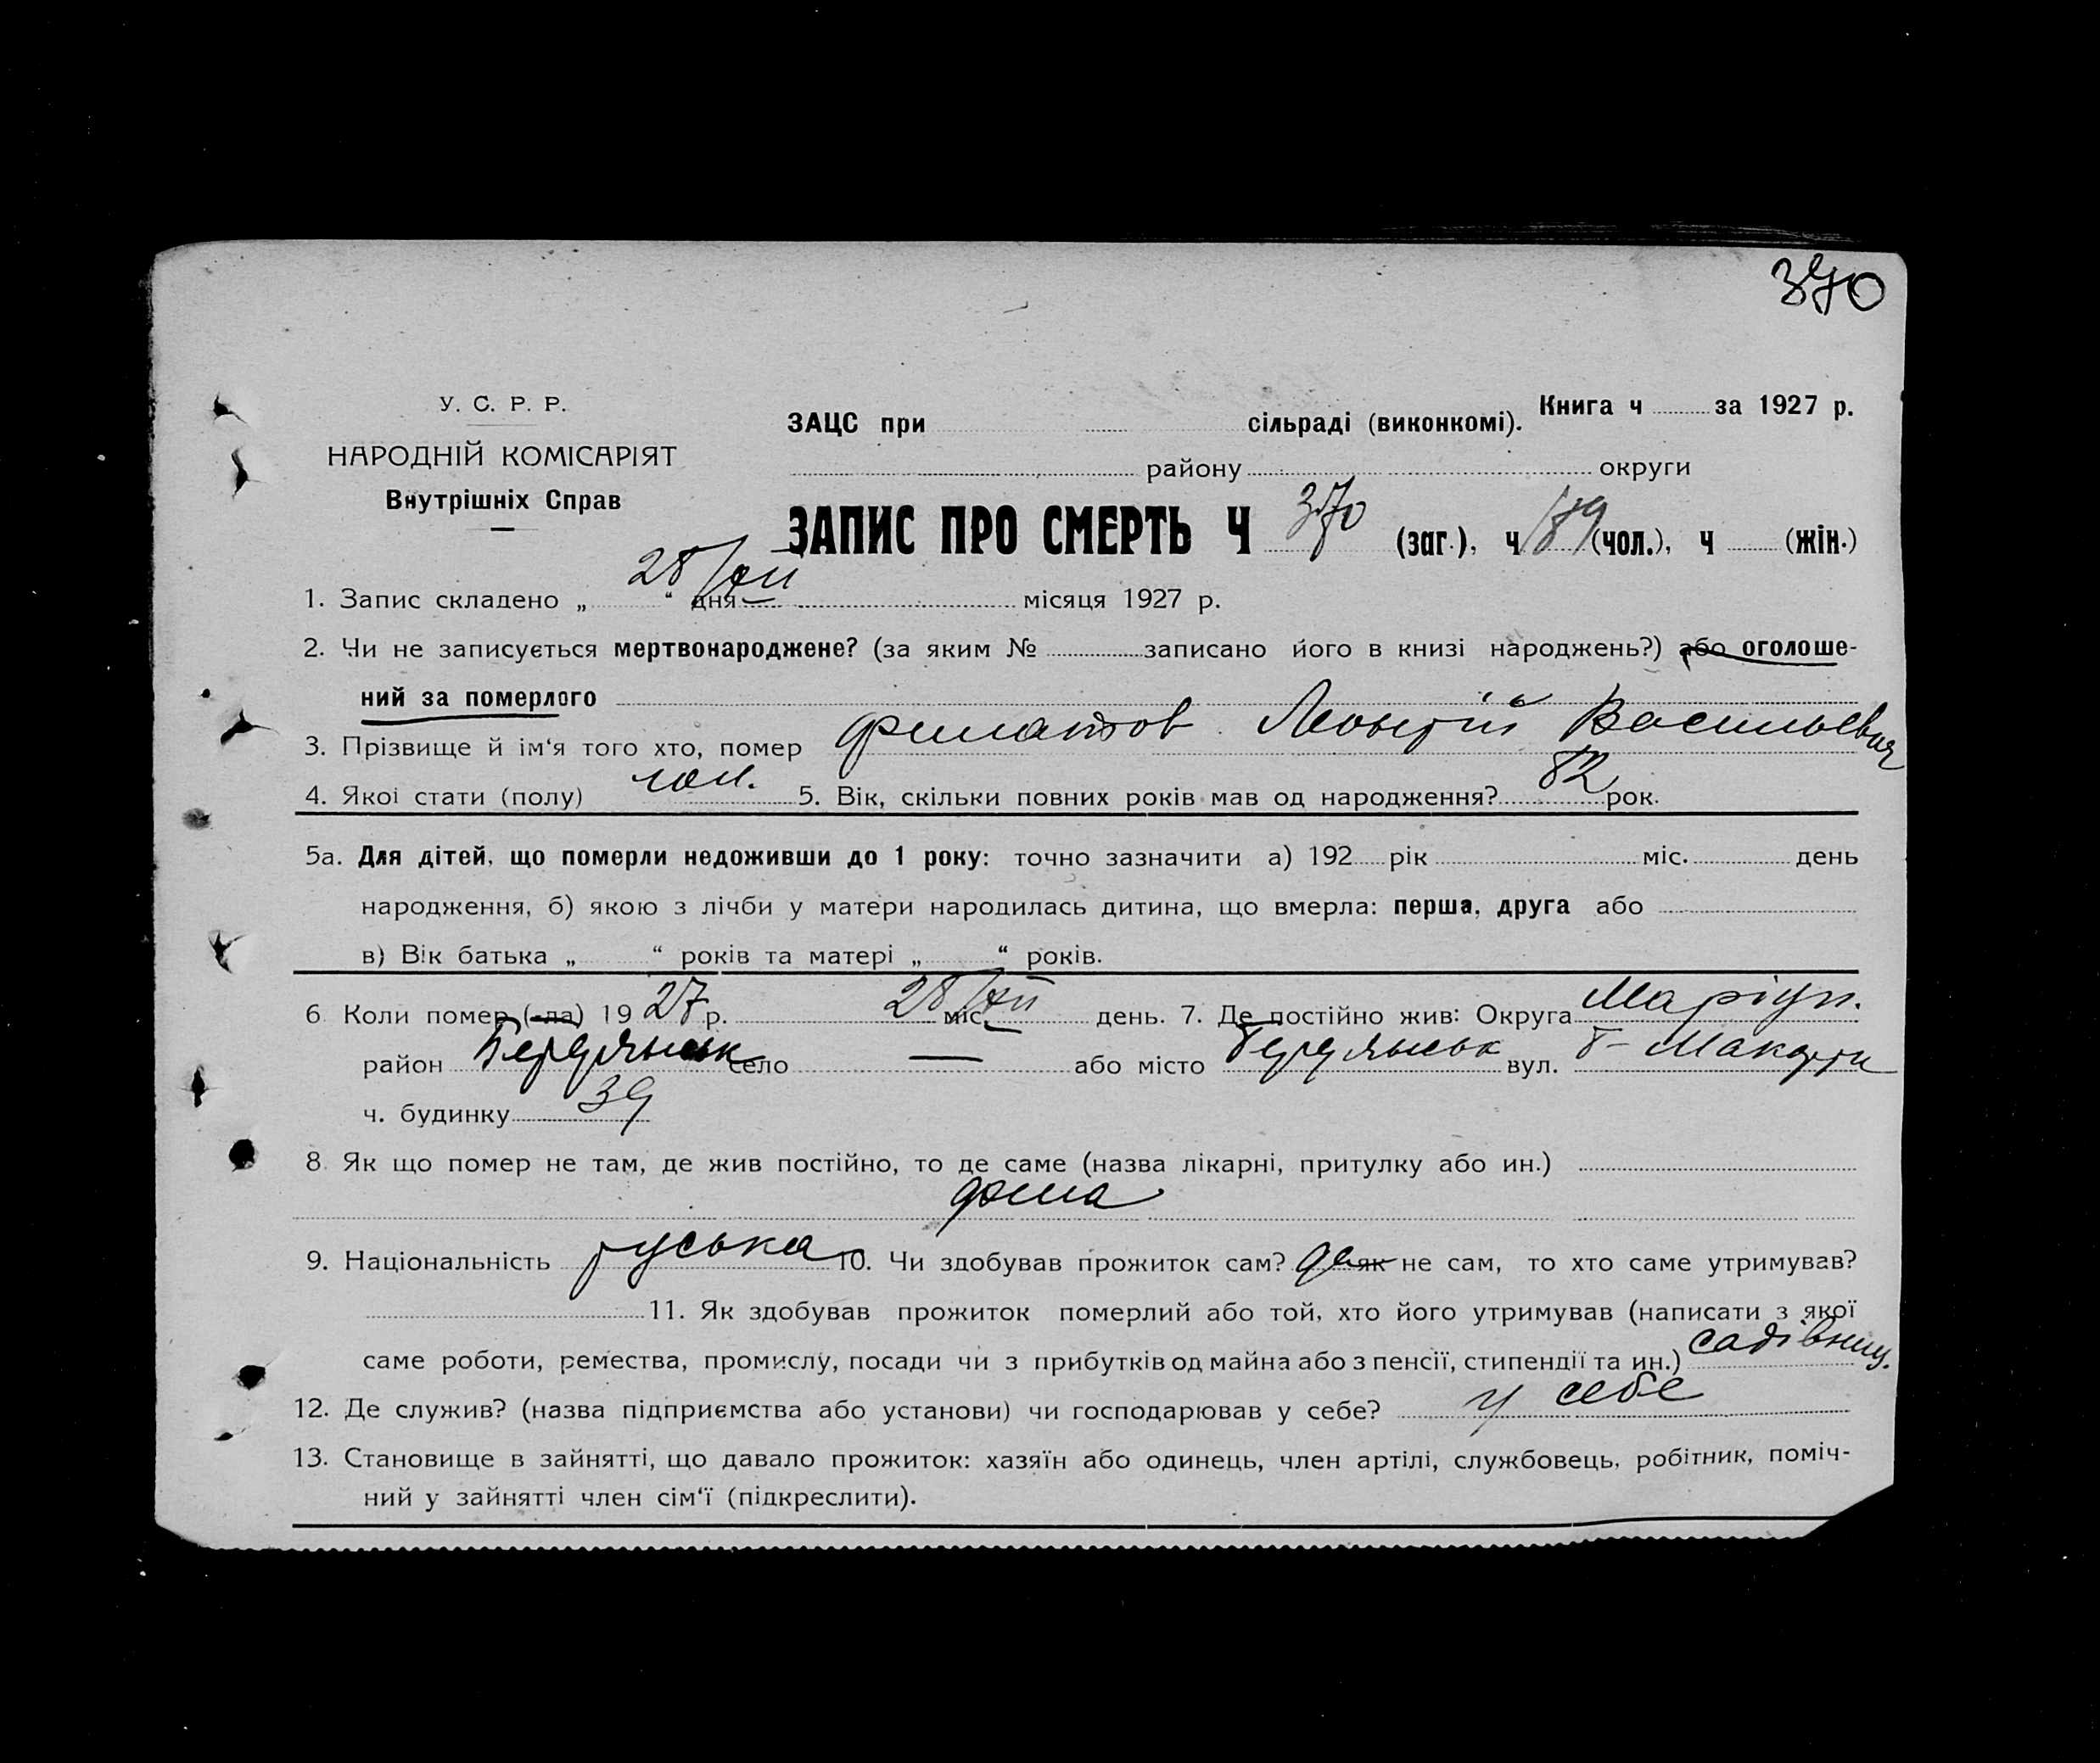 370
У. С. Р. Р.
НАРОДНІЙ КОМІСАРІЯТ
Внутрішніх Справ
ЗАЦС при сільраді (виконкомі). Книга ч за 1927 р.
району округи
ЗАПИС ПРО СМЕРТЬ Ч 370 (заг.), ч 189 (чол.), ч (жін.)
1. Запис складено „ 28/XII “ дня місяця 1927 р.
2. Чи не записується мертвонароджене? (за яким № записано його в книзі народжень?) або оголоше-
ний за померлого
3. Прізвище й ім‘я того хто, помер Филатов Леонтій Васильевич
4. Якої стати (полу) чол. 5. Вік, скільки повних років мав од народження? 82 рок.
5а. Для дітей, що померли недоживши до 1 року: точно зазначити а) 192 рік міс. день
народження, б) якою з лічби у матери народилась дитина, що вмерла: перша, друга або
в) Вік батька „ “ років та матері „ “ років.
6 Коли помер (-ла) 1927 р. 28/XII міс. день. 7. Де постійно жив: Округа Маріуп.
район Бердянськ село — або місто Бердянськ вул.
ч. будинку 39
8. Як що помер не там, де жив постійно, то де саме (назва лікарні, притулку або ин.)
дома
9. Національність руська 10. Чи здобував прожиток сам? да як не сам, то хто саме утримував?
11. Як здобував прожиток померлий або той, хто його утримував (написати з якої
саме роботи, ремества, промислу, посади чи з прибутків од майна або з пенсії, стипендії та ин.) садівниц.
12. Де служив? (назва підприємства або установи) чи господарював у себе? у себе
13. Становище в зайнятті, що давало прожиток: хазяїн або одинець, член артілі, службовець, робітник, поміч-
ний у зайнятті член сім‘ї (підкреслити).